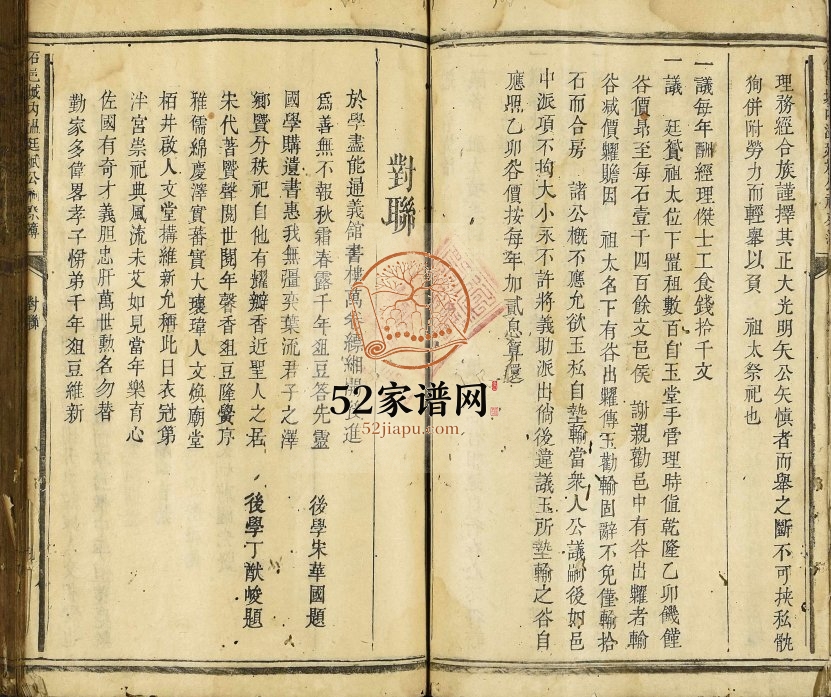 理務經合族謹擇其正大光明矢公矢慎者而舉之斷不可挾私骫
狥併附勞力而輕舉以負　祖太祭祀也
一議每年酬經理傑士工食錢拾千文
一議　廷貲祖太位下置租數百自玉堂手管理時値乾隆乙卯饑饉
谷價昻至每石壹千四百餘文邑侯　謝親勸邑中有谷出糶者輸
谷減價糶賑因　祖太名下有谷出糶傳玉勸輸固辭不免僅輸拾
石而合房　諸公概不應允欲玉私自墊輸當衆人公議嗣後如邑
中派項不拘大小永不許將義助派出倘後違議玉所墊輸之谷自
應照乙卯谷價按每年加貳息算還
對聯
於學盡能通義館書樓萬　縹緗開後進
爲善無不報秋霜春露千年俎豆答先靈
國學購遺書惠我無彊奕葉流君子之澤
鄉賢分秩祀自他有耀瓣香近聖人之居　後學朱華國題
宋代著賢聲閱世閱年馨香俎豆隆黌序
雅儒綿慶澤實蕃實大瓌瑋人文煥廟堂　後學丁猷峻題
栢井啟人文堂搆維新允稱此日衣冠第
泮宮崇祀典風流未艾如見當年樂育心
佐國有奇才義胆忠肝萬世勲名勿替
勤家多偉畧孝子悌弟千年俎豆維新
石邑城內溫廷　公祠祭簿
對聯
52家谱网
52jiapu.com